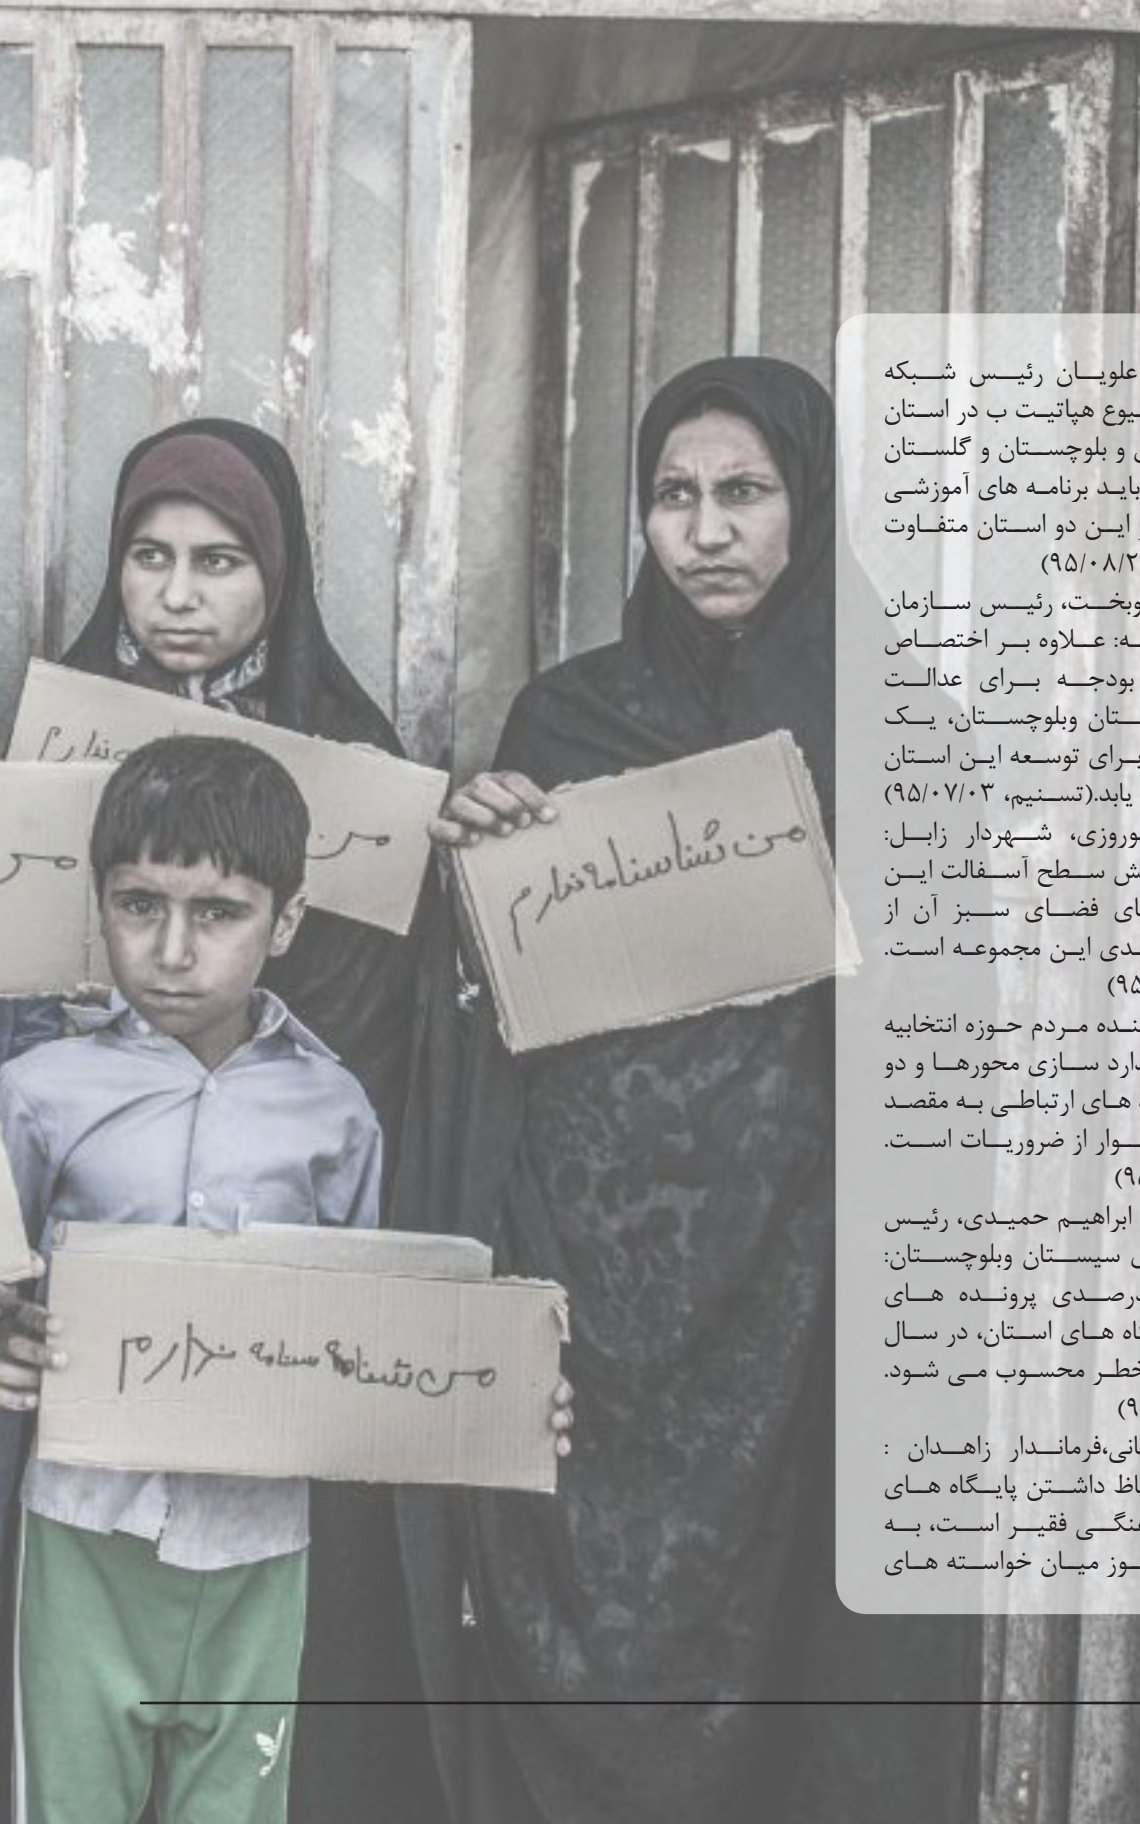 علویان رئیس شبکه
یوع هپاتیت ب در استان
و بلوچستان و گلستان
باید برنامه های آموزشی
این دو استان متفاوت
۹۵/۰۸/۲)
وبخت، رئیس سازمان
ه: علاوه بر اختصاص
بودجه برای عدالت
ستان وبلوچستان، یک
برای توسعه این استان
یابد.(تسنیم، ۹۵/۰۷/۰۳)
وروزی، شهردار زابل:
ش سطح آسفالت این
ای فضای سبز آن از
دی این مجموعه است.
۹۵)
نده مردم حوزه انتخابیه
دارد سازی محورها و دو
های ارتباطی به مقصد
وار از ضروریات است.
۹۵)
ابراهیم حمیدی، رئیس
سیستان وبلوچستان:
درصدی پرونده های
اه های استان، در سال
خطر محسوب می شود.
۹)
انی،فرماندار زاهدان :
اظ داشتن پایگاه های
نگی فقیر است، به
وز میان خواسته های
من ندارم
من
من شناسنامه ندارم
من شناسنامه ندارم